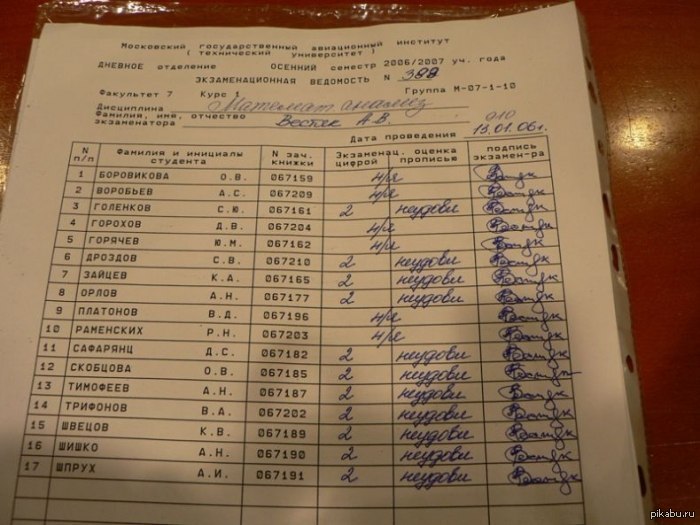 Московский государственный авиационный институт
( технический университет )
ДНЕВНОЕ отделение ОСЕННИЙ семестр 2006/2007 уч. года
ЭКЗАМЕНАЦИОННАЯ ВЕДОМОСТЬ N 388
Факультет 7 Курс 1 Группа М-07-1-10
Дисциплина Математ анализ
Фамилия, имя, отчество
экзаменатора Вестяк А.В. 910
Дата проведения 13.01.06г.
N п/п Фамилия и инициалы студента N зач. книжки Экзаменац. оценка цифрой прописью подпись экзамен-ра
1 БОРОВИКОВА О.В. 067159 н/я
2 ВОРОБЬЕВ А.С. 067209 н/я
3 ГОЛЕНКОВ С.Ю. 067161 2 неудовл
4 ГОРОХОВ Д.В. 067204 н/я
5 ГОРЯЧЕВ Ю.М. 067162 н/я
6 ДРОЗДОВ С.В. 067210 2 неудовл
7 ЗАЙЦЕВ К.А. 067165 2 неудовл
8 ОРЛОВ А.Н. 067177 2 неудовл
9 ПЛАТОНОВ В.Д. 067196 н/я
10 РАМЕНСКИХ Р.Н. 067203 н/я
11 САФАРЯНЦ Д.С. 067182 2 неудовл
12 СКОБЦОВА О.В. 067185 2 неудовл
13 ТИМОФЕЕВ А.Н. 067187 2 неудовл
14 ТРИФОНОВ В.А. 067202 2 неудовл
15 ШВЕЦОВ К.В. 067189 2 неудовл
16 ШИШКО А.Н. 067190 2 неудовл
17 ШПРУХ А.И. 067191 2 неудовл
pikabu.ru